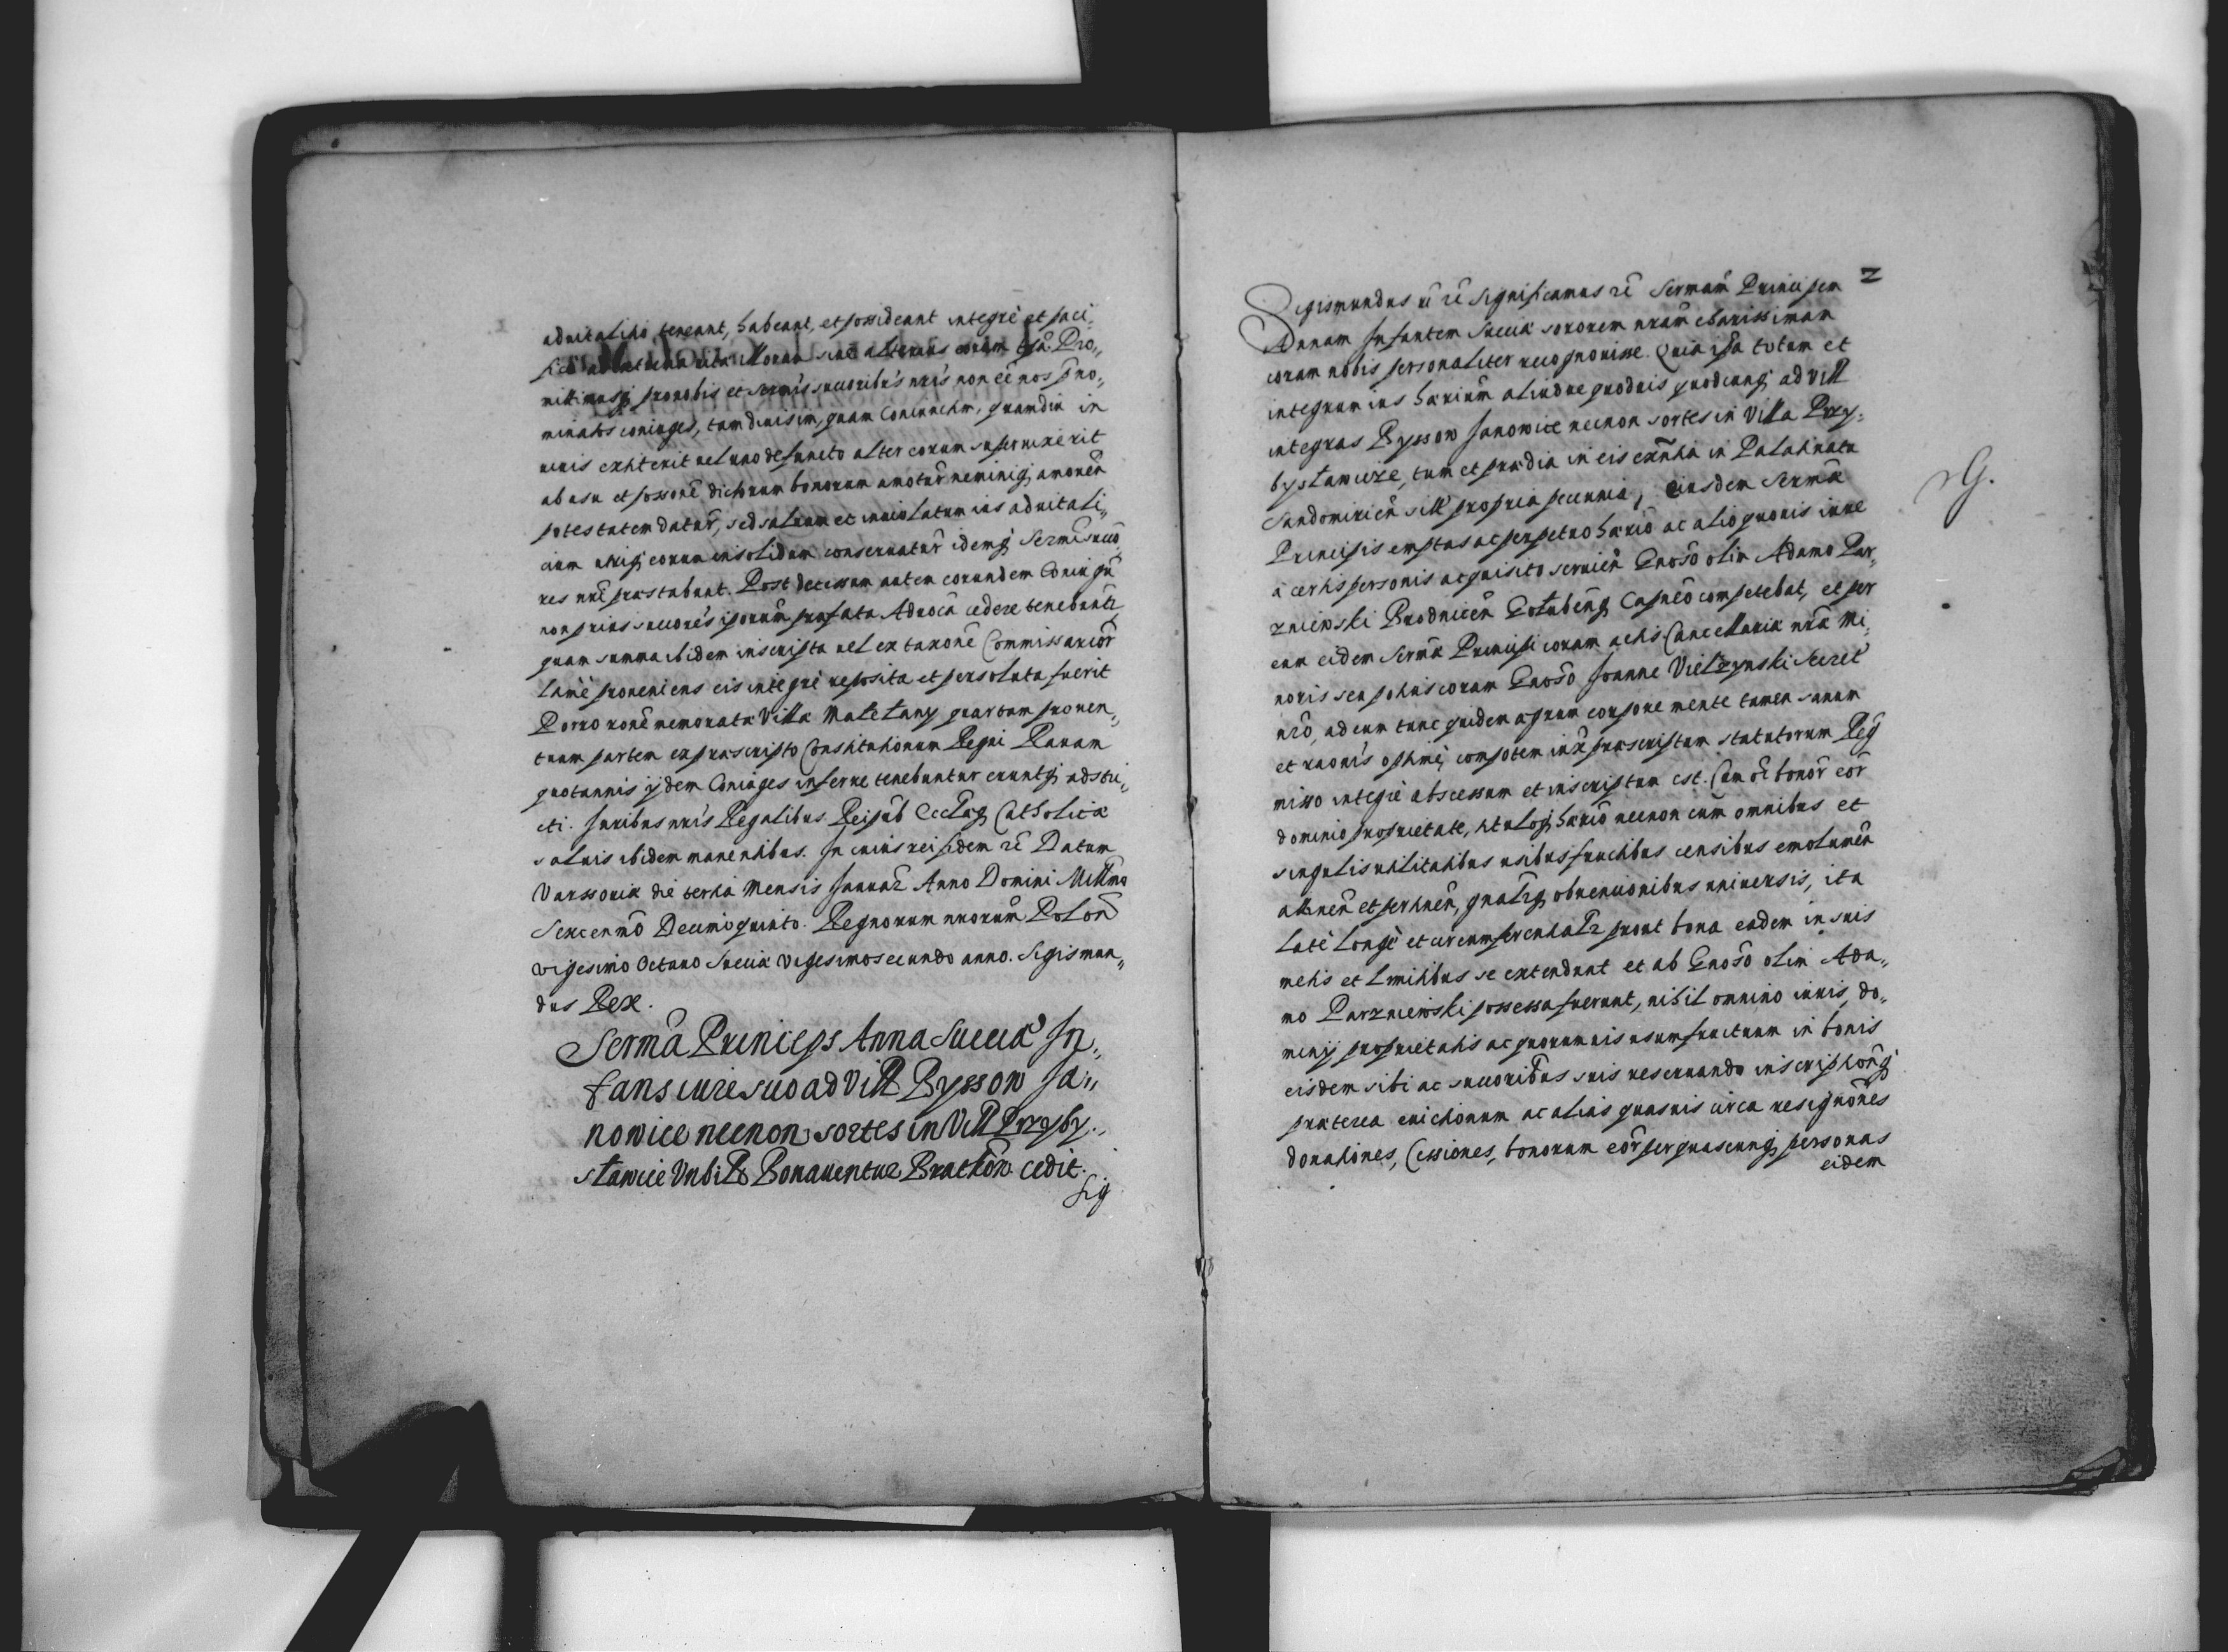 aduitalitio teneant, habeant, et possideant integrè et paci„
nittimusq; pro nobis et sermis succoribus nris non eē nos p̄no„
minatos coniuges, tam diuisim, quam coniunctim, quamdiu in
uiuis extiterit uel uno defuncto alter eorum superuixerit
ab usu et possone dictorum bonorum amoturū neminiq; amouen̄
potestatem daturū, sed saluum et inuiolatum ius aduitali„
cium utriq; eorum insolidum conseruaturū idemq; Sermi succo„
res nri præstabunt. Post decessum autem eorundem Coniugū
non prius succores ipsorum præfata Aduocā cedere tenebuntr
quam summa ibidem inscripta uel ex taxone Commissarior
tanè proueniens eis integrè reposita et persoluta fuerit
Porro rone memoratæ Villæ Małetany quartam prouen„
tuum partem ex præscripto Constitutionum Regni Rauam
quotannis ijdem Coniuges inferre tenebuntur eruntq; adstri„
cti. Juribus nris Regalibus Reipub Ecclæq; Catholicæ
saluis ibidem manentibus. In cuius rei fidem rē Datum
Varssouiæ die tertia Mensis Januar Anno Domini Millmo
Sexcenmo Decimoquinto. Regnorum nrorum Polon
vigesimo Octauo Sueciæ vigesimosecundo anno. Sigismun„
dus Rex.
Serma Princeps Anna Sueciæ In„
fans iure suo ad Vill Ryssow Ja„
nowice necnon sortes in Vill Przyby„
sławice Vrbi Bonauenturæ Bratkow cedit.
Sig
2
Sigismundus rē rē Significamus rē Sermam Principem
Annam Infantem Sueciæ sororem nram charissimam
coram nobis personaliter recognouisse. Quia ipsa totum et
integrum ius hærium aliudue quoduis quodcunq; ad Vill
integras Ryssow Janowice necnon sortes in Villa Przy„
bysławicze, tum et prædia in eis exñtia in Palatinatu
Sandomirien sitt propria pecunia, eiusdem Sermæ
Principis emptas ac perpetuo hærio ac alio quouis iure
à certis personis acquisito seruien̄ Gnoso olim Adamo Par„
zniewski Brodnicen Golubenq; Capneo competebat, et per
eum eidem Sermæ Principi coram actis Cancellariæ nræ Mi„
noris seu potius coram Gnoso Joanne Vielzynski Secret
nro, ad eum tunc quidem ægrum corpore mente tamen sanum
et raonis optimè compotem iuxta præscriptum statutorum Reg
misso integrè abscessum et inscriptum est. Cum oi bonor eor
dominio proprietate, tituloq; hærio necnon cum omnibus et
singulis utilitatibus usibus fructibus censibus emolumen̄
attinen̄ et pertinen̄, gnalrq; obuentionibus uniuersis, ita
latè longè et circumferentialr prout bona eadem in suis
metis et Limitibus se extendunt et ab Gnoso olim Ada„
mo Parzniewski possessa fuerunt, nihil omnino iuris, do„
minij proprietatis ac quorumuis usumfructuum in bonis
eisdem sibi ac succoribus suis reseruando inscriptionq;
præterea euictionum ac alias quasuis circa resignones
donationes, Cessiones, bonorum eor per quascunq; personas
eidem